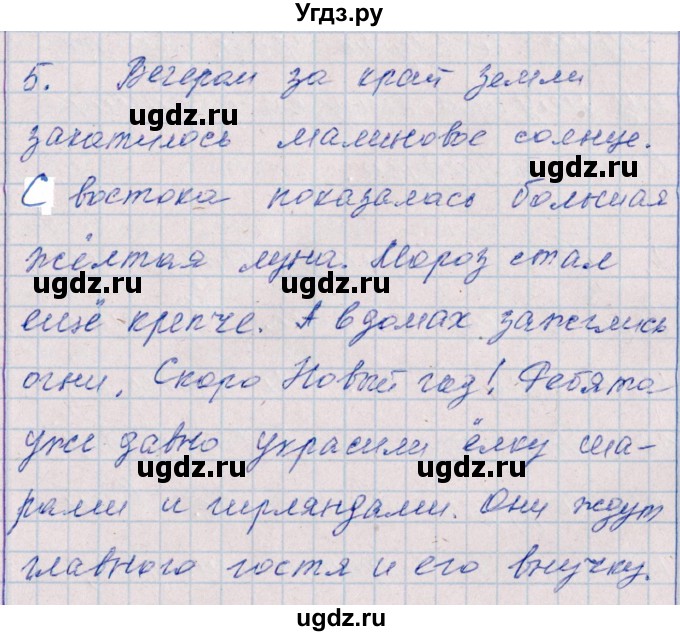 Угдз.ру
5. Вечером за край земли
ugdz.ru ugdz.ru
закатилось малиновое солнце.
ugdz.ru
С востока показалась большая
жёлтая луна. Мороз стал
ugdz.ru ugdz.ru
ещё крепче. А в домах зажглись
огни. Скоро Новый год! Ребята
ugdz.ru
уже давно украсили ёлку ша-
ugdz.ru ugdz.ru
рами и гирляндами. Они ждут
ugdz.ru
главного гостя и его внучку.
ugdz.ru